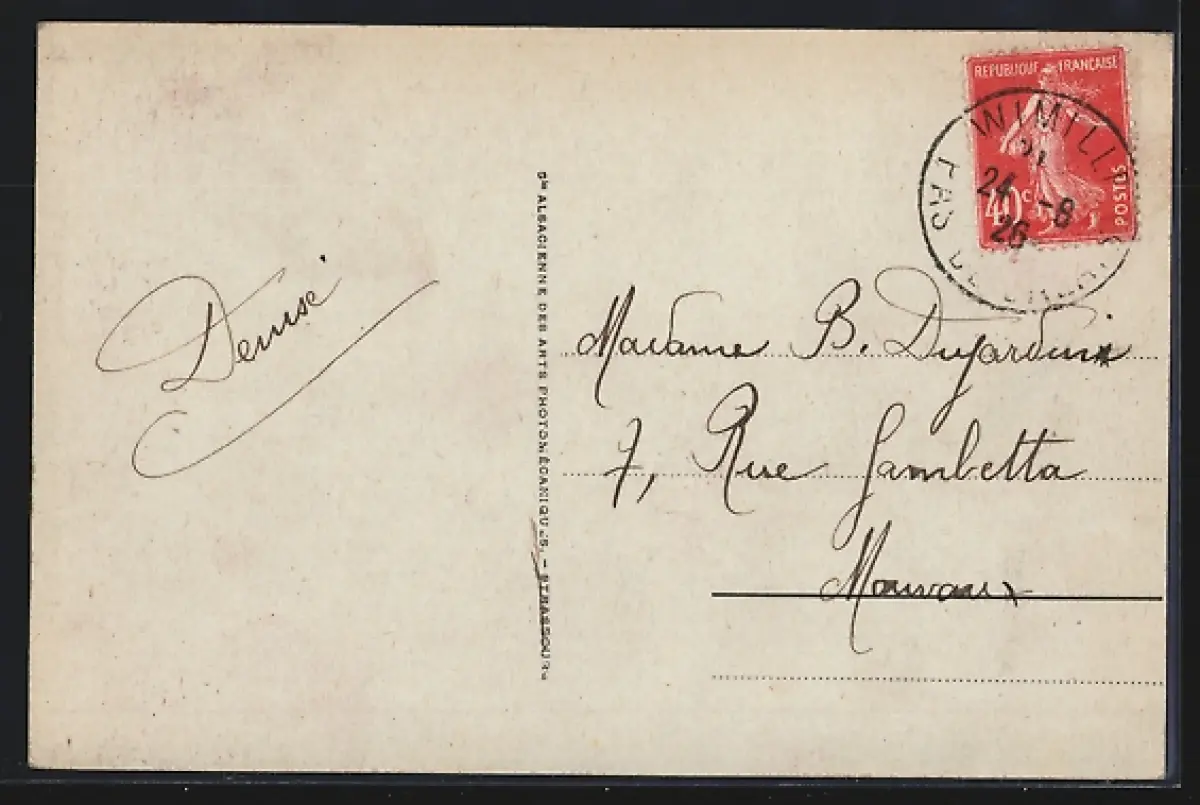 Denise
Sté ALSACIENNE DES ARTS PHOTOMÉCANIQUES. - STRASBOURG
REPUBLIQUE FRANÇAISE
40c
POSTES
WIMILLE
PAS DE CALAIS
21
24 -8
26
Madame B. Dujardin
7, Rue Gambetta
Mouvaux